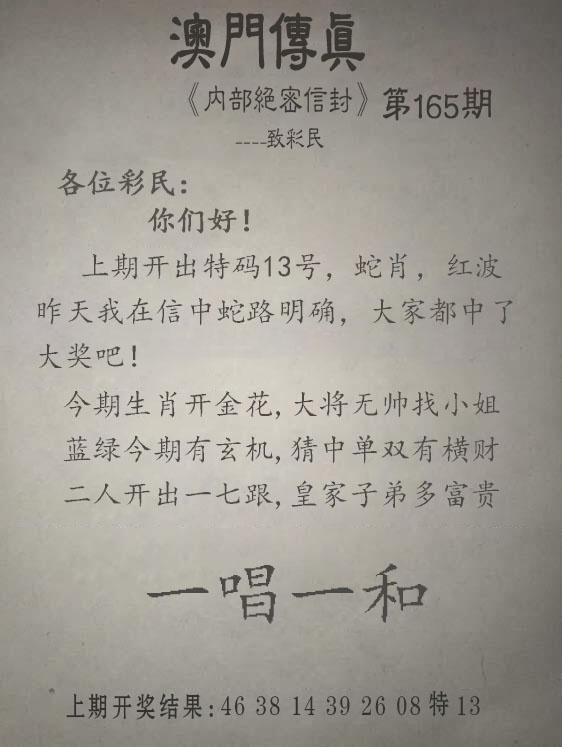 澳門傳眞
《内部絕密信封》第165期
----致彩民
各位彩民：
你们好！
上期开出特码13号，蛇肖，红波
昨天我在信中蛇路明确，大家都中了
大奖吧！
今期生肖开金花,大将无帅找小姐
蓝绿今期有玄机,猜中单双有横财
二人开出一七跟,皇家子弟多富贵
一唱一和
上期开奖结果:46 38 14 39 26 08 特 13